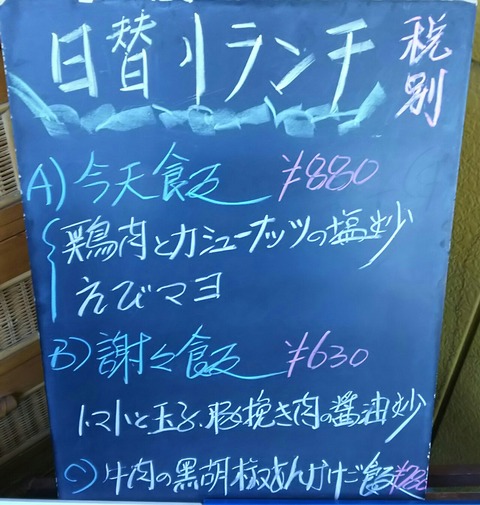 日替りランチ 税別
A) 今天飯 ¥880
鶏肉とカシューナッツの塩炒
えびマヨ
B) 謝々飯 ¥630
トマトと玉子、豚挽き肉の醤油炒
C) 牛肉の黒胡椒あんかけご飯